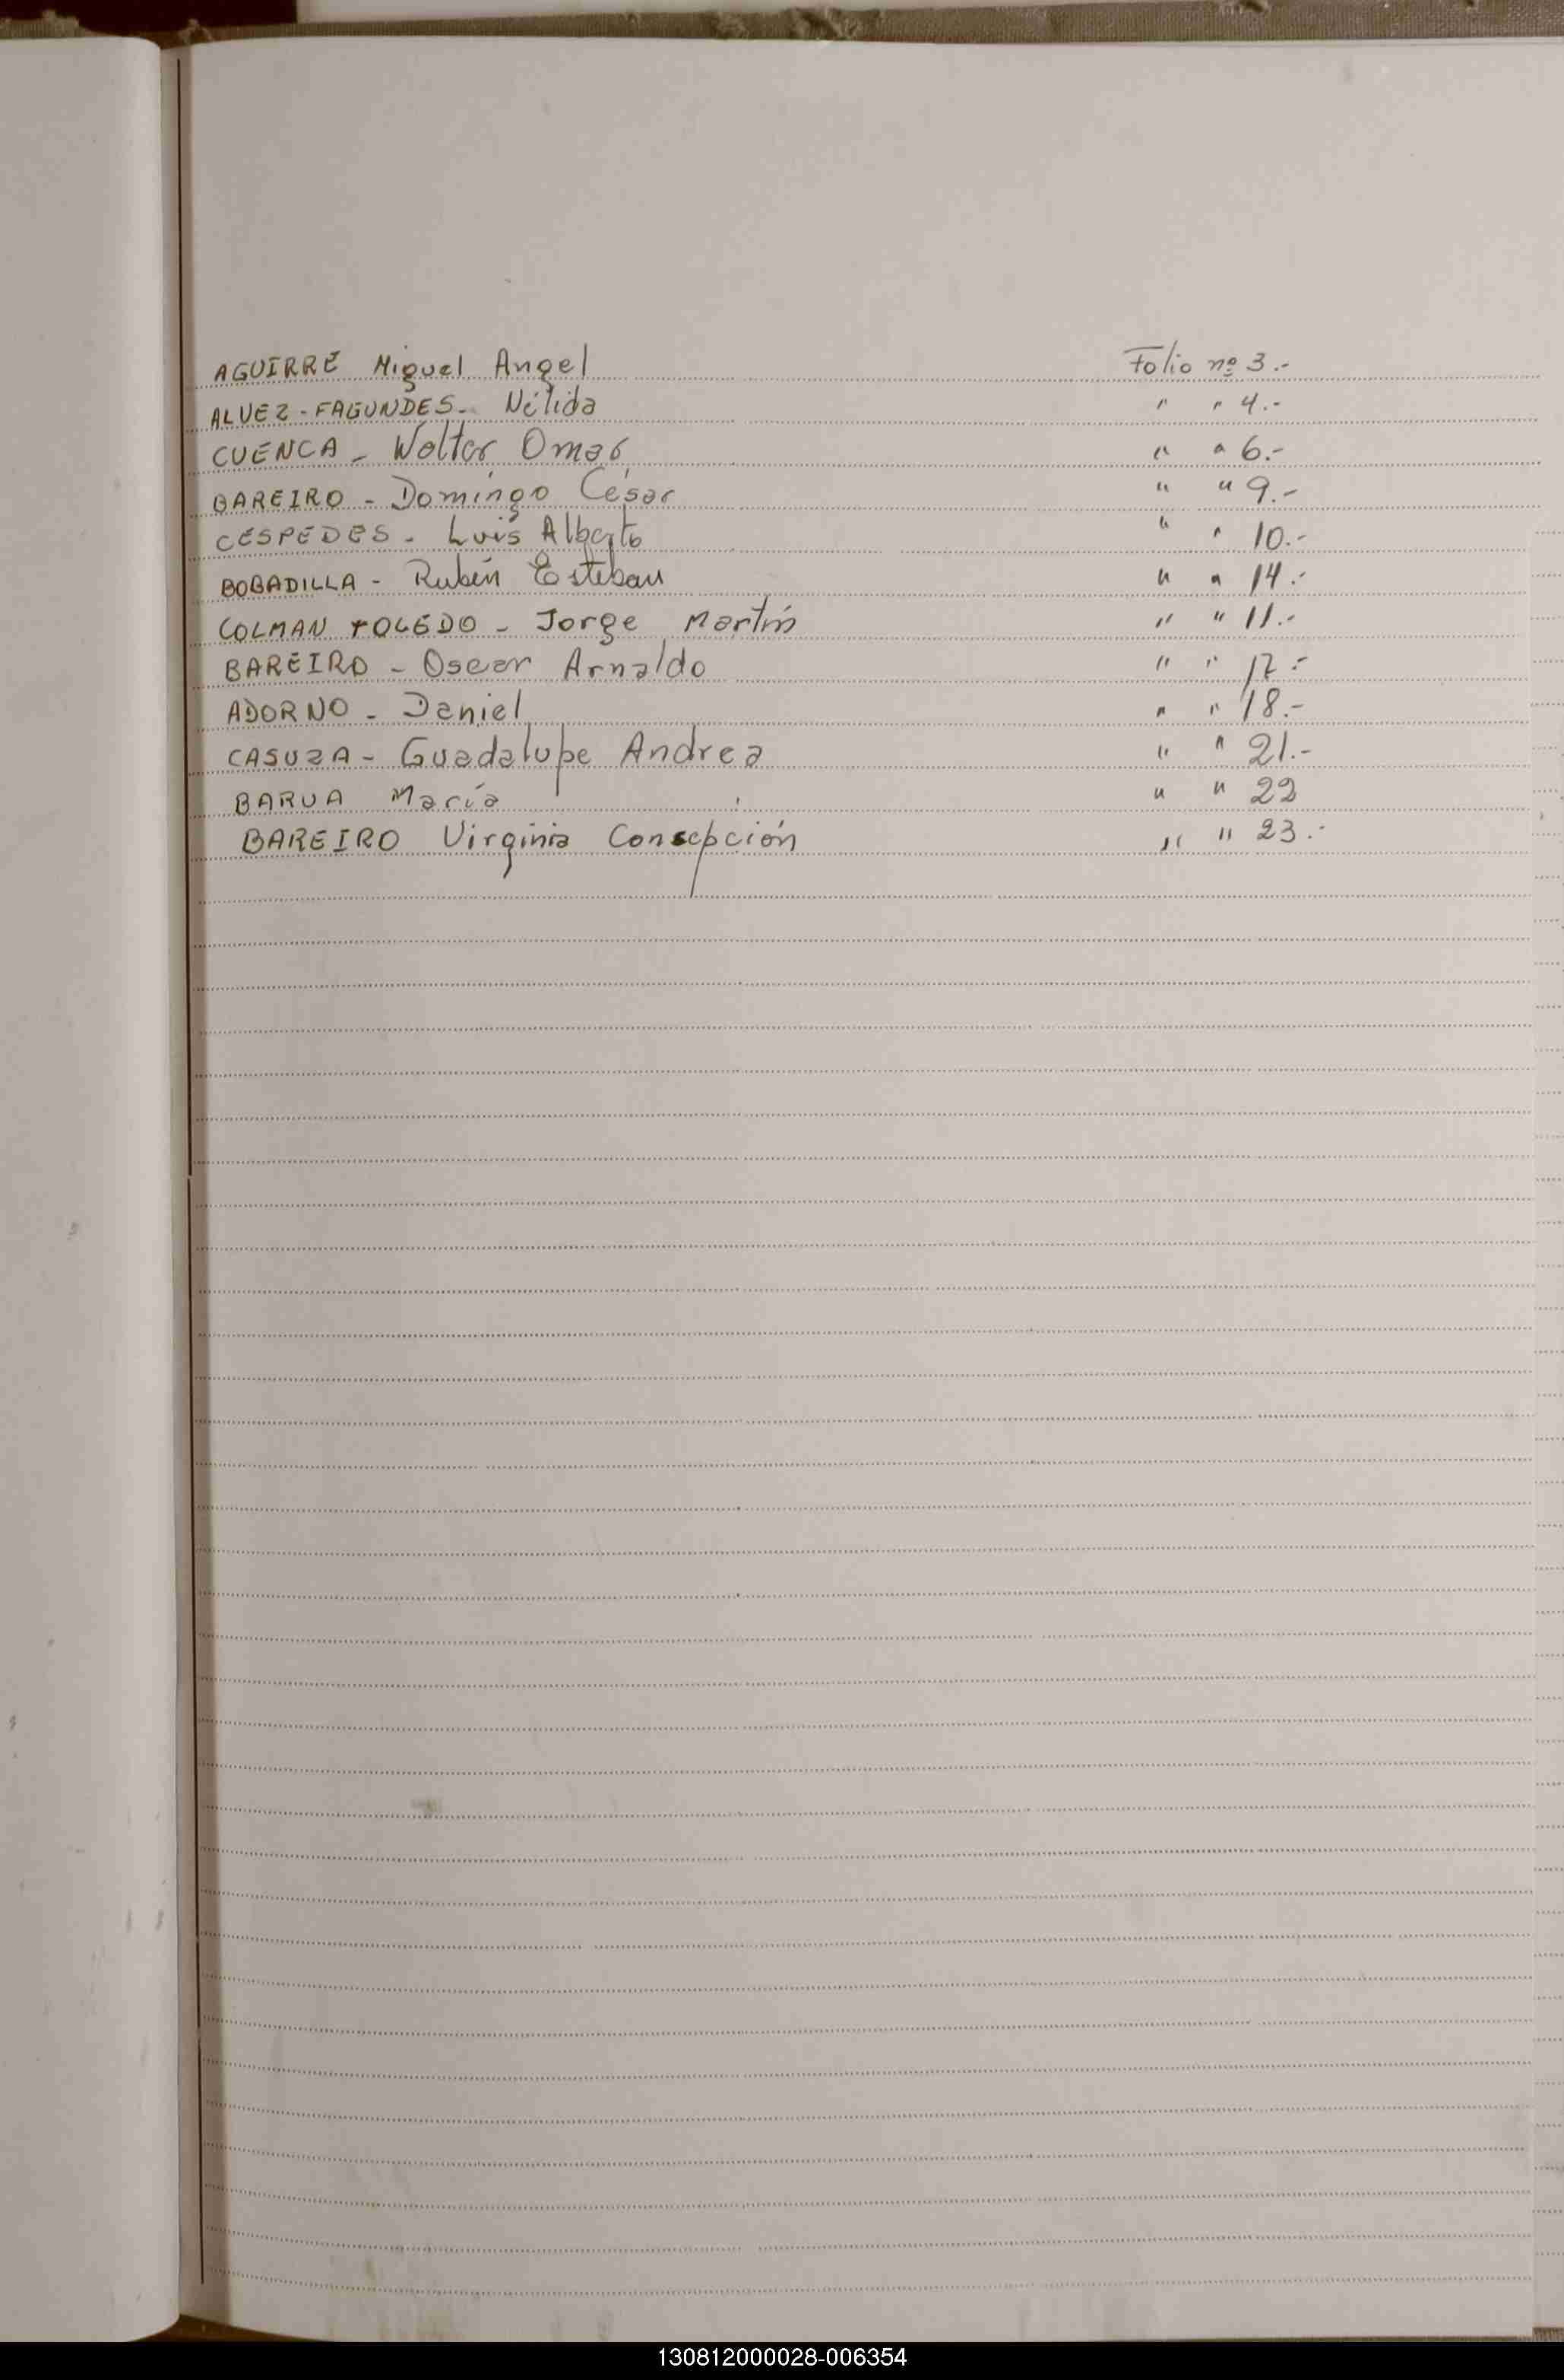 AGUIRRE Miguel Angel Folio nº 3.-
ALVEZ-FAGUNDES- Nélida " " 4.-
CUENCA - Walter Omar " " 6.-
BAREIRO - Domingo César " " 9.-
CESPEDES - Luis Alberto " " 10.-
BOBADILLA - Rubén Esteban " " 14.-
COLMAN TOLEDO - Jorge Martín " " 11.-
BAREIRO - Oscar Arnaldo " " 17.-
ADORNO - Daniel " " 18.-
CASUZA - Guadalupe Andrea " " 21.-
BARUA María " " 22
BAREIRO Virginia Consepción " " 23.-
130812000028-006354